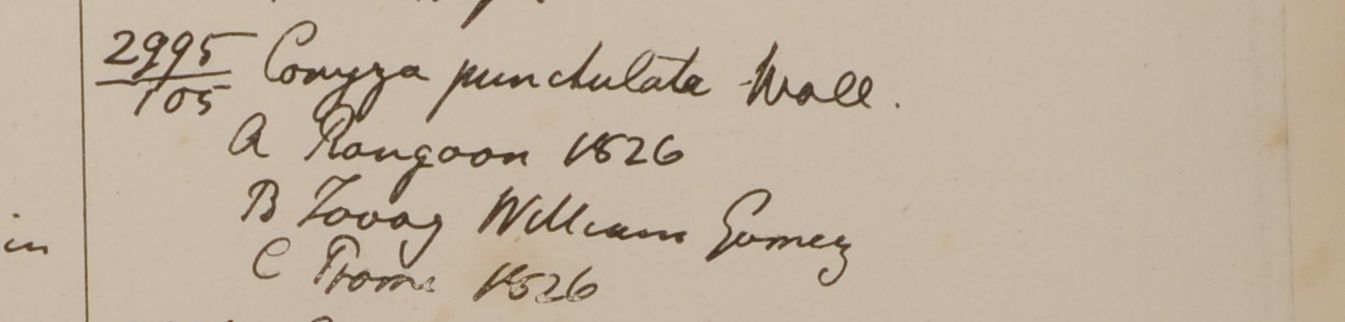 2995 Conyza punctulata Wall.
105
A Rangoon 1826
B Tavoy William Gomez
in
C Prome 1826